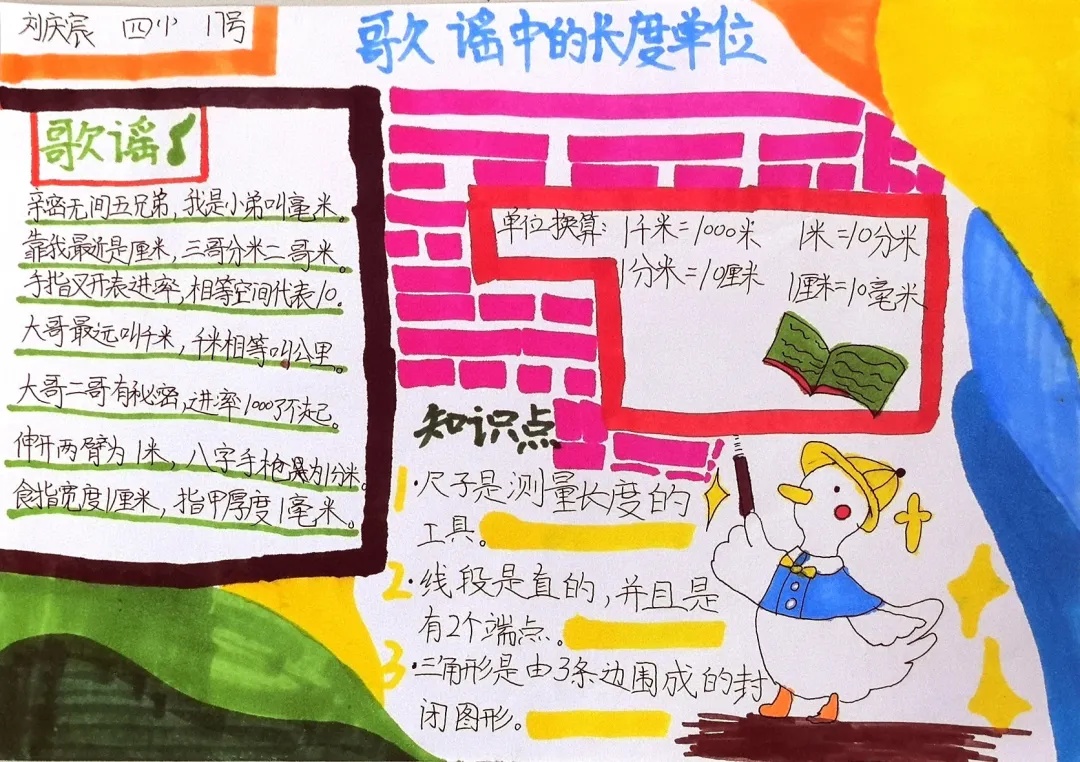 刘庆宸 四小 17号
歌谣中的长度单位
歌谣
亲密无间五兄弟,我是小弟叫毫米。
靠我最近是厘米,三哥分米二哥米。
手指叉开表进率,相等空间代表10。
大哥最远叫千米,千米相等叫公里。
大哥二哥有秘密,进率1000了不起。
伸开两臂为1米,八字手枪为1分米。
食指宽度1厘米,指甲厚度1毫米。
单位换算:1千米=1000米 1米=10分米
1分米=10厘米 1厘米=10毫米
知识点
1·尺子是测量长度的
工具。
2·线段是直的,并且是
有2个端点。
3·三角形是由3条边围成的封
闭图形。